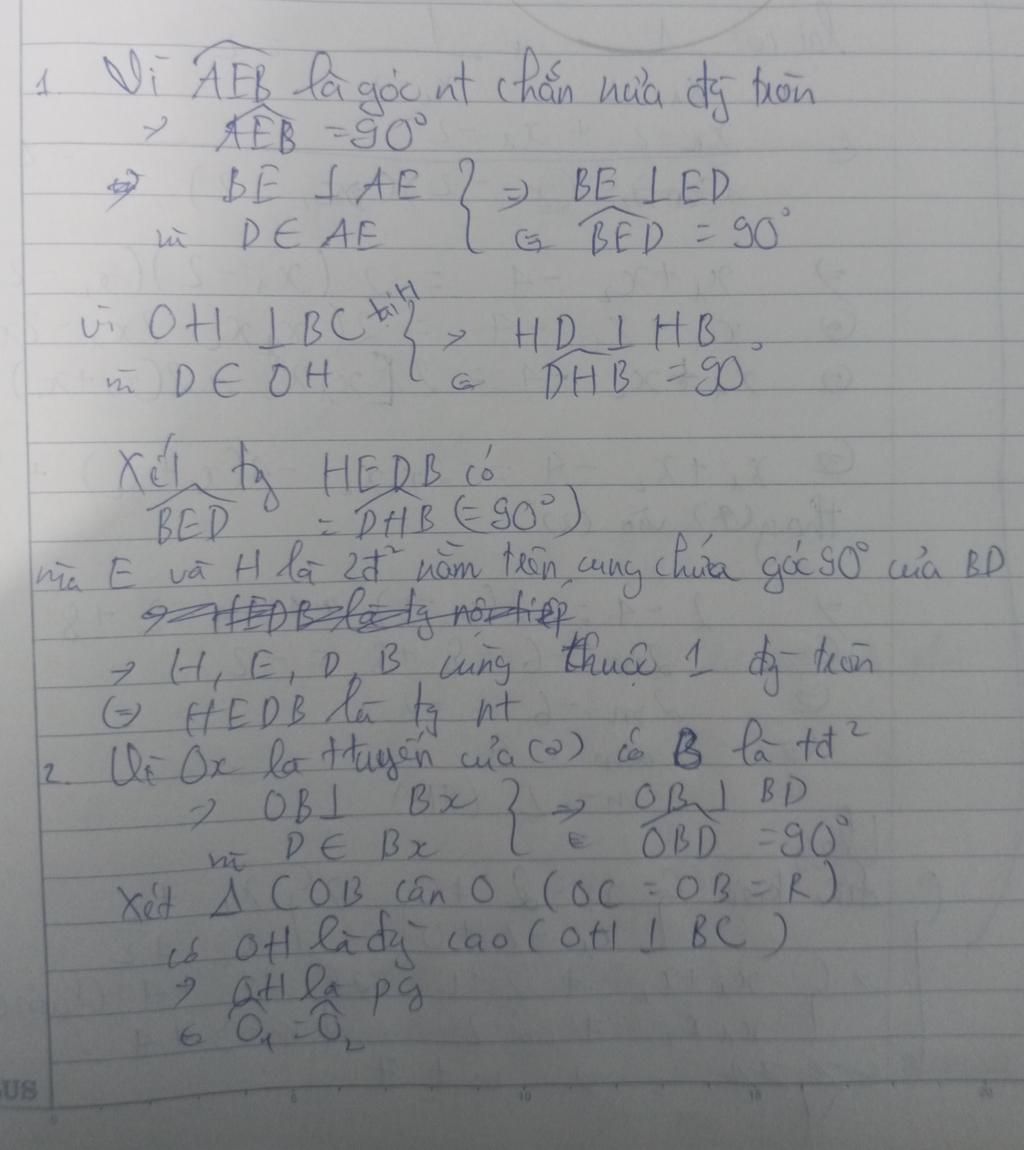 1. Vì AEB là góc nt chắn nửa đg tròn
=> AEB = 90°
<=> BE ⊥ AE } => BE ⊥ ED
mà D ∈ AE <=> BED = 90°
vì OH ⊥ BC tại H } => HD ⊥ HB
mà D ∈ OH <=> DHB = 90°
Xét tg HEDB có
BED = DHB (= 90°)
mà E và H là 2đ² nằm trên cung chứa góc 90° của BD
=> HEDB là tg nội tiếp
=> H, E, D, B cùng thuộc 1 đg tròn
<=> HEDB là tg nt
2. Vì Ox là ttuyến của (O) có B là tđ²
=> OB ⊥ Bx } => OB ⊥ BD
mà D ∈ Bx <=> OBD = 90°
Xét Δ COB cân O (OC = OB = R)
có OH là đg cao (OH ⊥ BC)
=> OH là pg
<=> O₁ = O₂